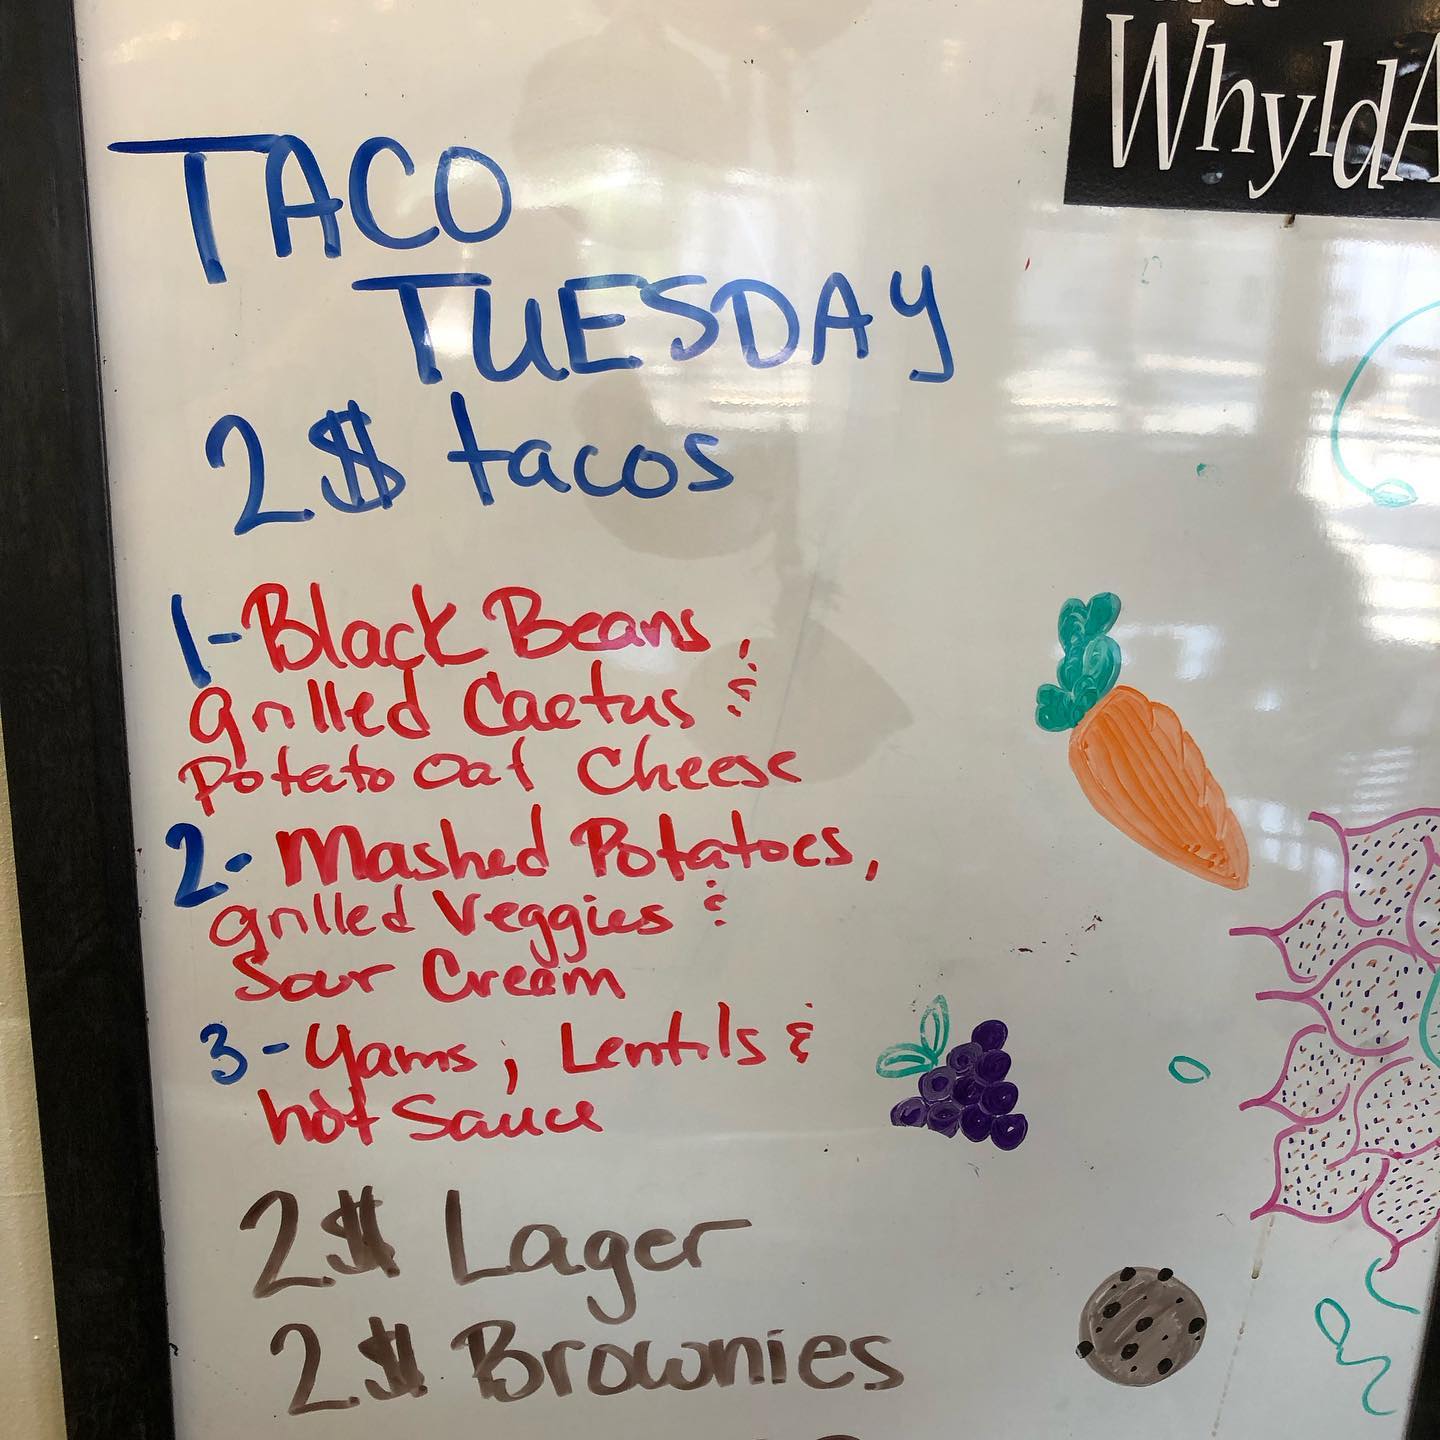 WhyldA
TACO
TUESDAY
2$ tacos
1-Black Beans,
Grilled Cactus &
Potato Oat Cheese
2- Mashed Potatoes,
Grilled Veggies &
Sour Cream
3-Yams, Lentils &
hot Sauce
2$ Lager
2$ Brownies